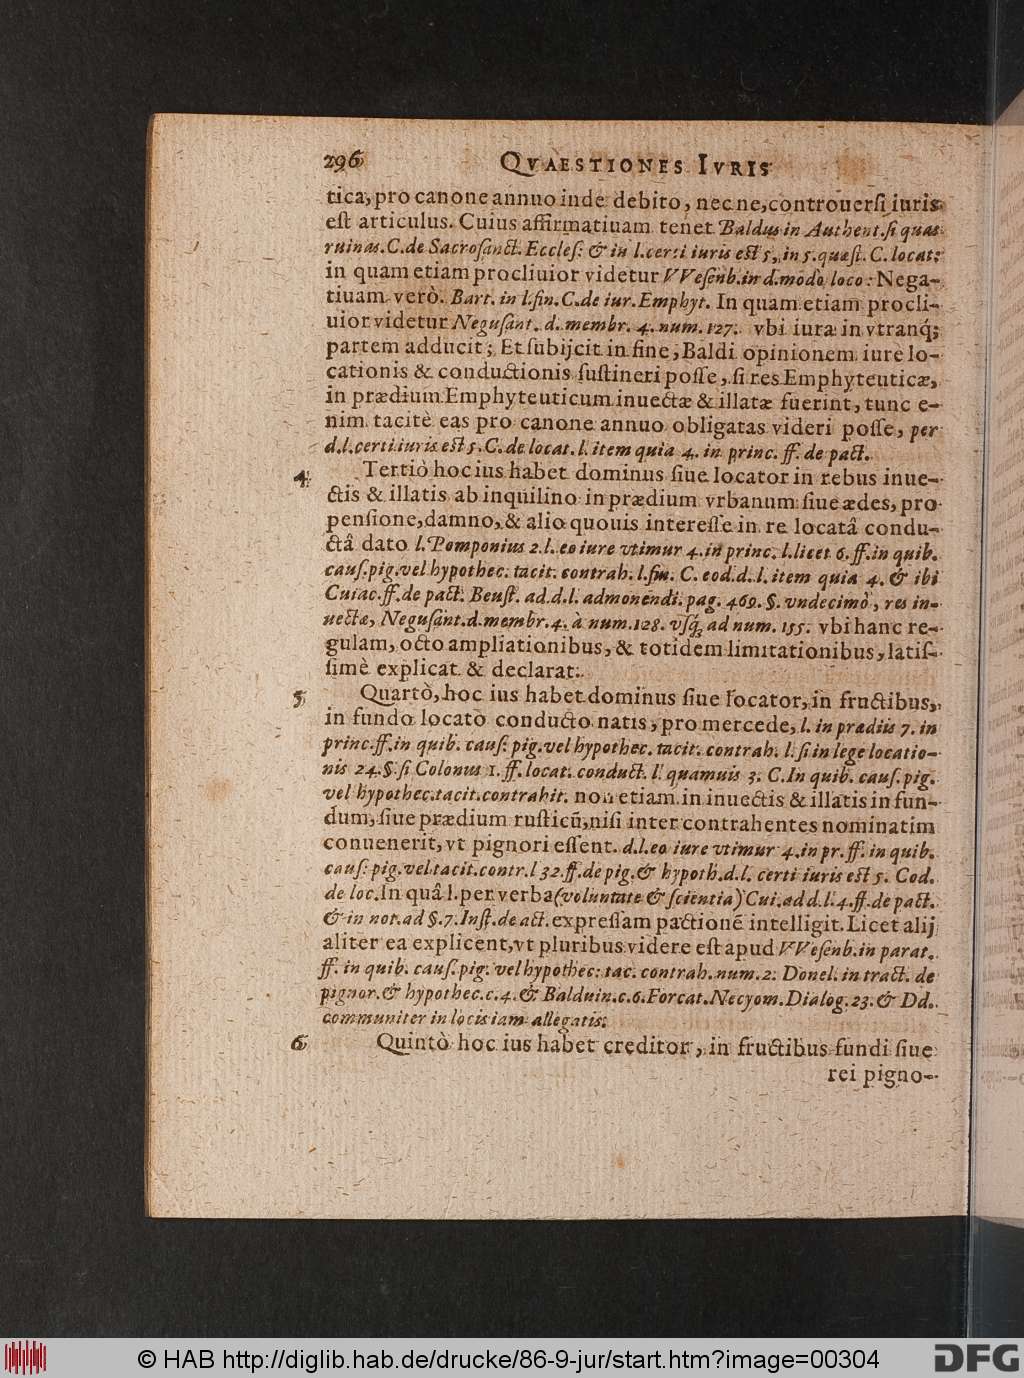 296 QVAESTIONES IVRIS
tica, pro canone annuo inde debito, nec ne, controuersi iuris
est articulus. Cuius affirmatiuam tenet Baldus in Authent. si quas
ruinas. C. de Sacrosanct. Eccles. & in l. certi iuris est 5., in 5. quæst. C. locat:
in quam etiam procliuior videtur VVesenb. in d. modò loco: Nega-
tiuam verò. Bart. in l. fin. C. de iur. Emphyt. In quam etiam procli-
uior videtur Negusant. d. membr. 4. num. 127. vbi iura in vtranq́;
partem adducit; Et subijcit in fine, Baldi opinionem iure lo-
cationis & conductionis sustineri posse, si res Emphyteuticæ,
in prædium Emphyteuticum inuectæ & illatæ fuerint, tunc e-
nim tacitè eas pro canone annuo obligatas videri posse, per
d. l. certi iuris est 5. C. de locat. l. item quia 4. in princ. ff. de pact.
4 Tertiò hoc ius habet dominus siue locator in rebus inue-
ctis & illatis ab inquilino in prædium vrbanum siue ædes, pro
pensione, damno, & alio quouis interesse in re locatâ condu-
ctâ dato l. Pomponius 2. l. eo iure vtimur 4. in princ. l. licet 6. ff. in quib.
caus. pig. vel hypothec. tacit. contrah. l. fin. C. eod. d. l. item quia 4. & ibi
Cuiac. ff. de pact. Beust. ad. d. l. admonendi. pag. 469. §. vndecimò, res in-
uectæ, Negusant. d. membr. 4. à num. 128. vsq́; ad num. 155. vbi hanc re-
gulam, octo ampliationibus, & totidem limitationibus, latis-
simè explicat & declarat.
5 Quartò, hoc ius habet dominus siue locator, in fructibus,
in fundo locato conducto natis, pro mercede, l. in prædiis 7. in
princ. ff. in quib. caus. pig. vel hypothec. tacit. contrah. l. si in lege locatio-
nis 24. §. si Colonus 1. ff. locat. conduct. l. quamuis 3. C. In quib. caus. pig.
vel hypothec. tacit. contrahit. non etiam in inuectis & illatis in fun-
dum, siue prædium rusticū, nisi inter contrahentes nominatim
conuenerit, vt pignori essent. d. l. eo iure vtimur 4. in pr. ff. in quib.
caus: pig. vel tacit. contr. l 32. ff. de pig. & hypoth. d. l. certi iuris est 5. Cod.
de loc. In quâ l. per verba (voluntate & scientia) Cui. ad d. l. 4. ff. de pact.
& in not. ad §. 7. Inst. de act. expressam pactionē intelligit. Licet alij
aliter ea explicent, vt pluribus videre est apud VVesenb. in parat.
ff. in quib. caus. pig. vel hypothec: tac. contrah. num. 2. Donel. in tract. de
pignor. & hypothec. c. 4. & Balduin. c. 6. Forcat. Necyom. Dialog. 23. & Dd.
communiter in locis iam allegatis.
6 Quintò hoc ius habet creditor, in fructibus fundi siue
rei pigno-
© HAB http://diglib.hab.de/drucke/86-9-jur/start.htm?image=00304
DFG